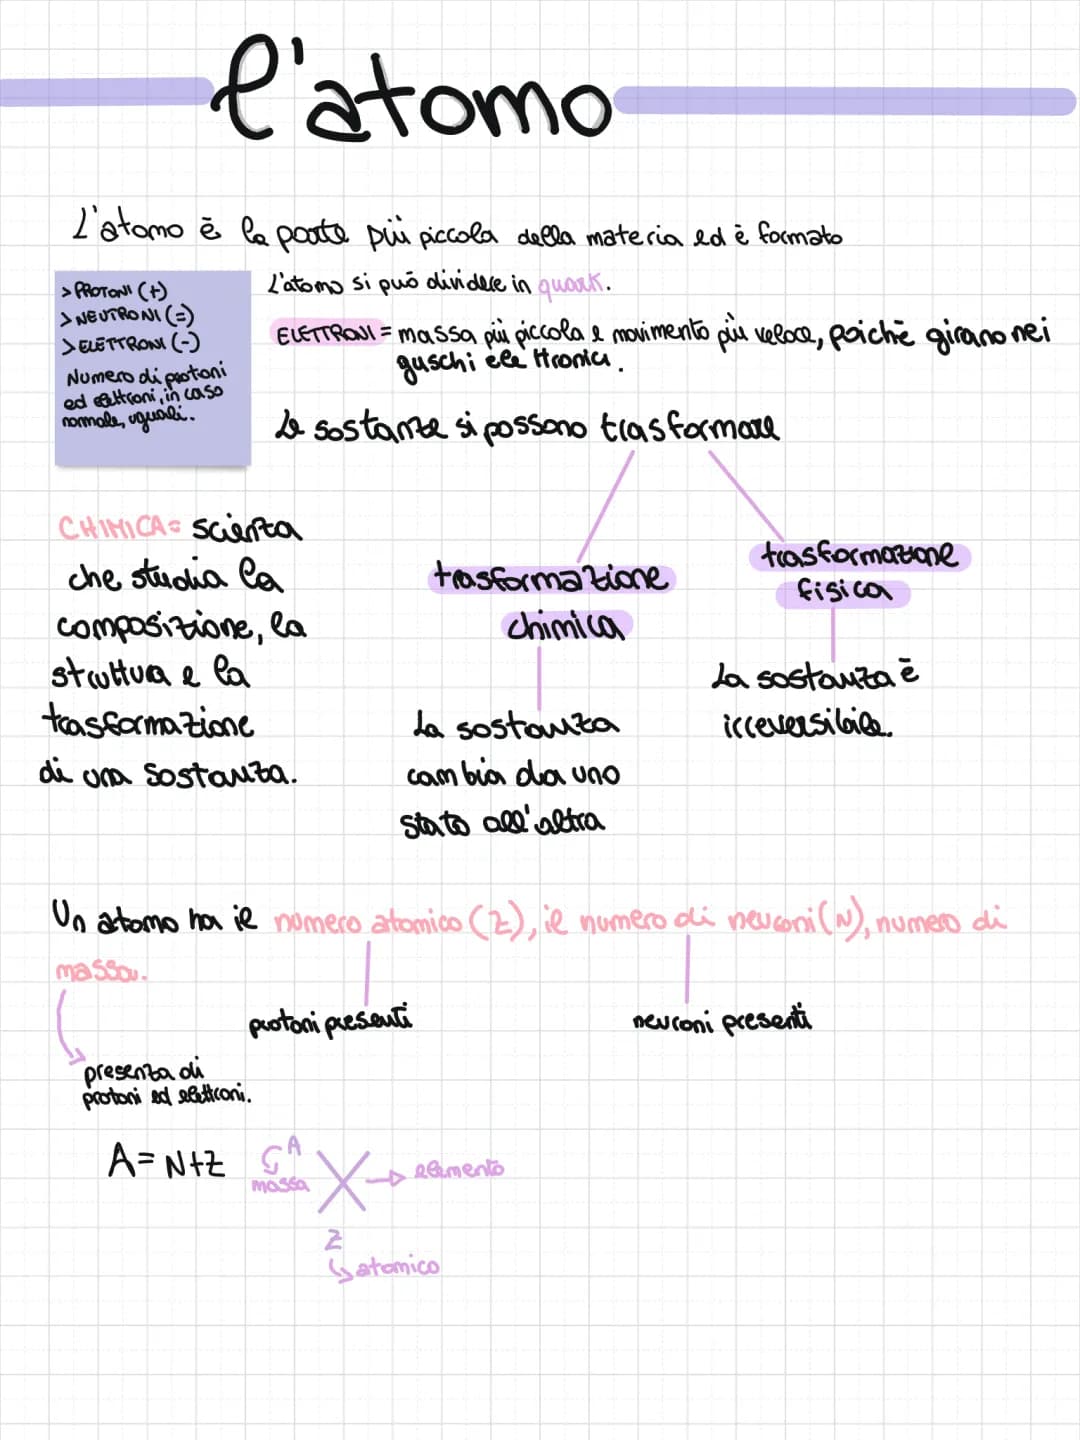 l'atomo
L'atomo è la parte più piccola della materia ed è formato
> PROTONI (+)
> NEUTRONI (=)
> ELETTRONI (-)
Numero di protoni
ed elettroni, in caso
normale, uguali.
L'atomo si può dividere in quark.
ELETTRONI = massa più piccola e movimento più veloce, poichè girano nei
guschi elettronici.
Le sostanze si possono trasformare
CHIMICA = scienza
che studia la
composizione, la
struttura e la
trasformazione
di una sostanza.
trasformazione
chimica
La sostanza
cambia da uno
stato all'altra
trasformazione
fisica
La sostanza è
irreversibile.
Un atomo ha il numero atomico (Z), il numero di neuroni (N), numero di
massa.
protoni presenti
neuroni presenti
presenza di
protoni ed elettroni.
A = N+Z
A
massa
X → elemento
Z
atomico